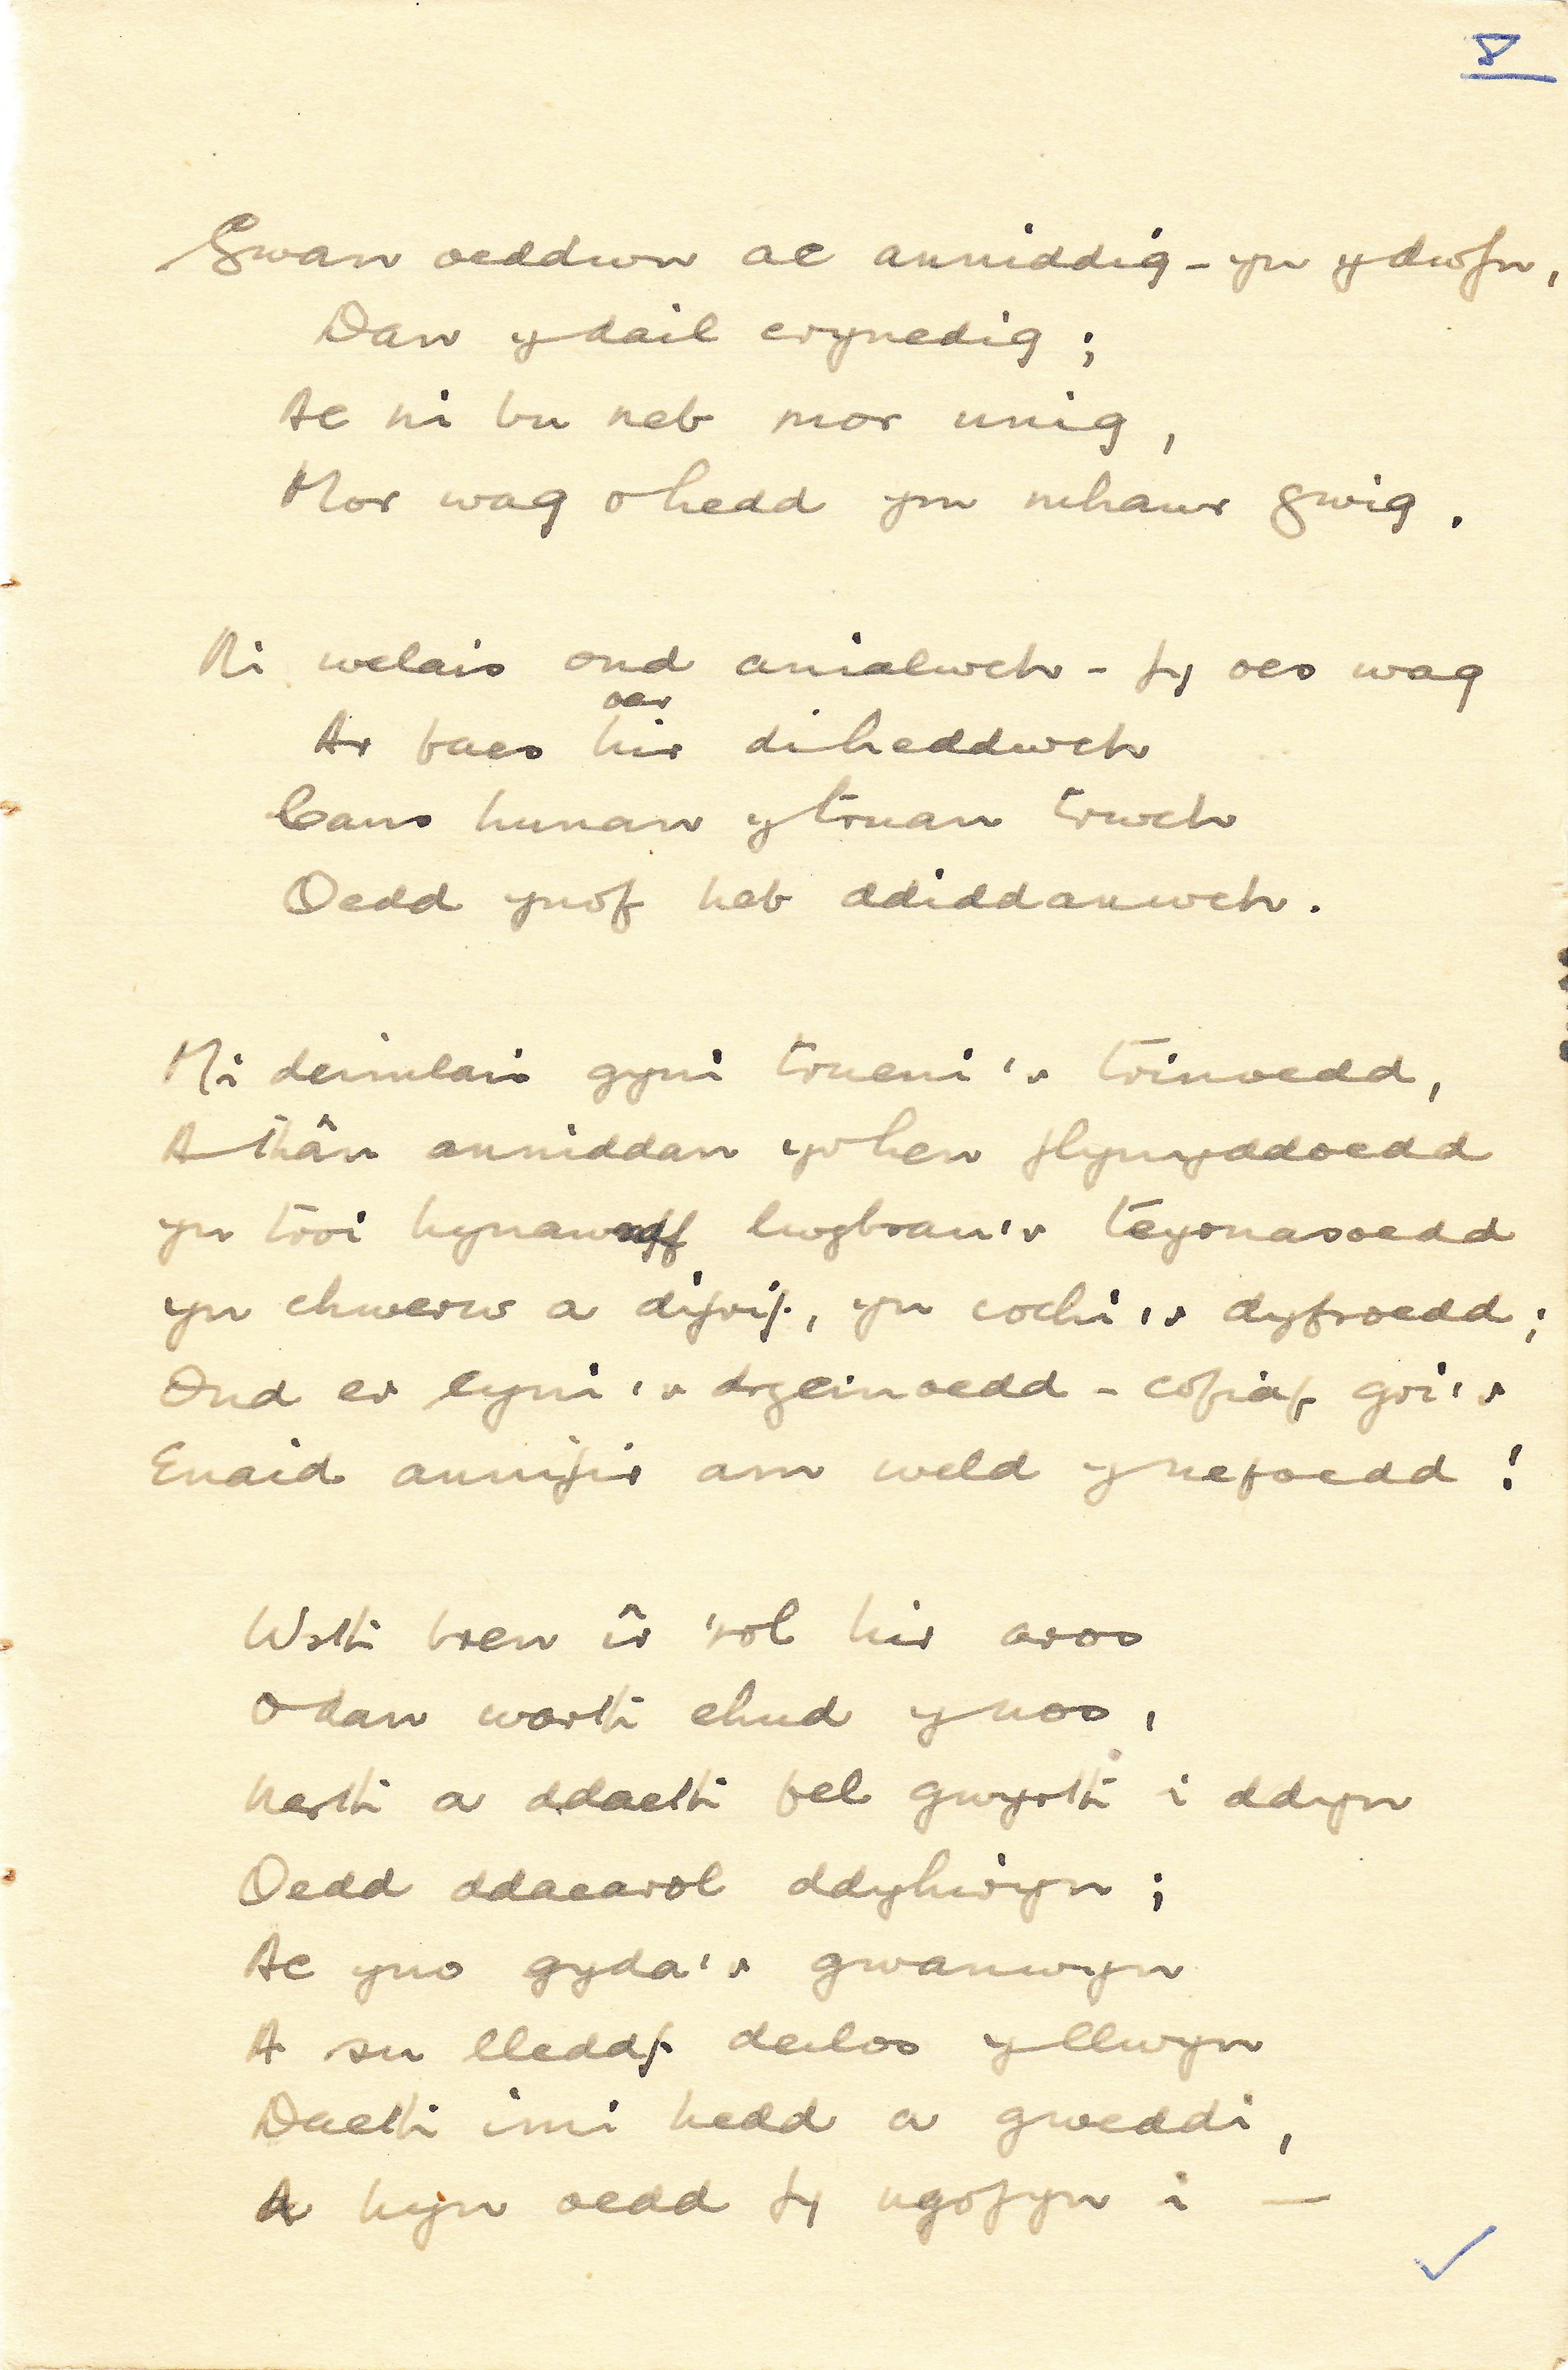 8
Gwan oeddwn ac anniddig - yn y dwfn,
Dan y dail crynedig;
Ac ni bu neb mor unig,
Mor wag o hedd ym mhawr gwig.
Ni welais ond anialwch - fy oes wag
oer
Ar faes hir diheddwch
Cans hunan y truan trwch
Oedd ynof heb ddiddanwch.
Mi deimlais gyni trueni'r trinoedd,
A thân anniddan yr hen flynyddoedd
yn troi hynaws lwybrau'r teyrnasoedd
yn chwerw a digrif, yn cochi'r dyfroedd;
Ond er cyni'r drycinoedd - cofiaf gri'r
Enaid annifir am weld y nefoedd!
Wrth bren îr 'rol hir aros
O dan warth ehud y nos,
Nerth a ddaeth fel gwyrth i ddyn
Oedd ddaearol ddyhiryn;
Ac yno gyda'r gwanwyn
A su lleddf deilos y llwyn
Daeth imi hedd a gweddi,
A hyn oedd fy ngofyn i —